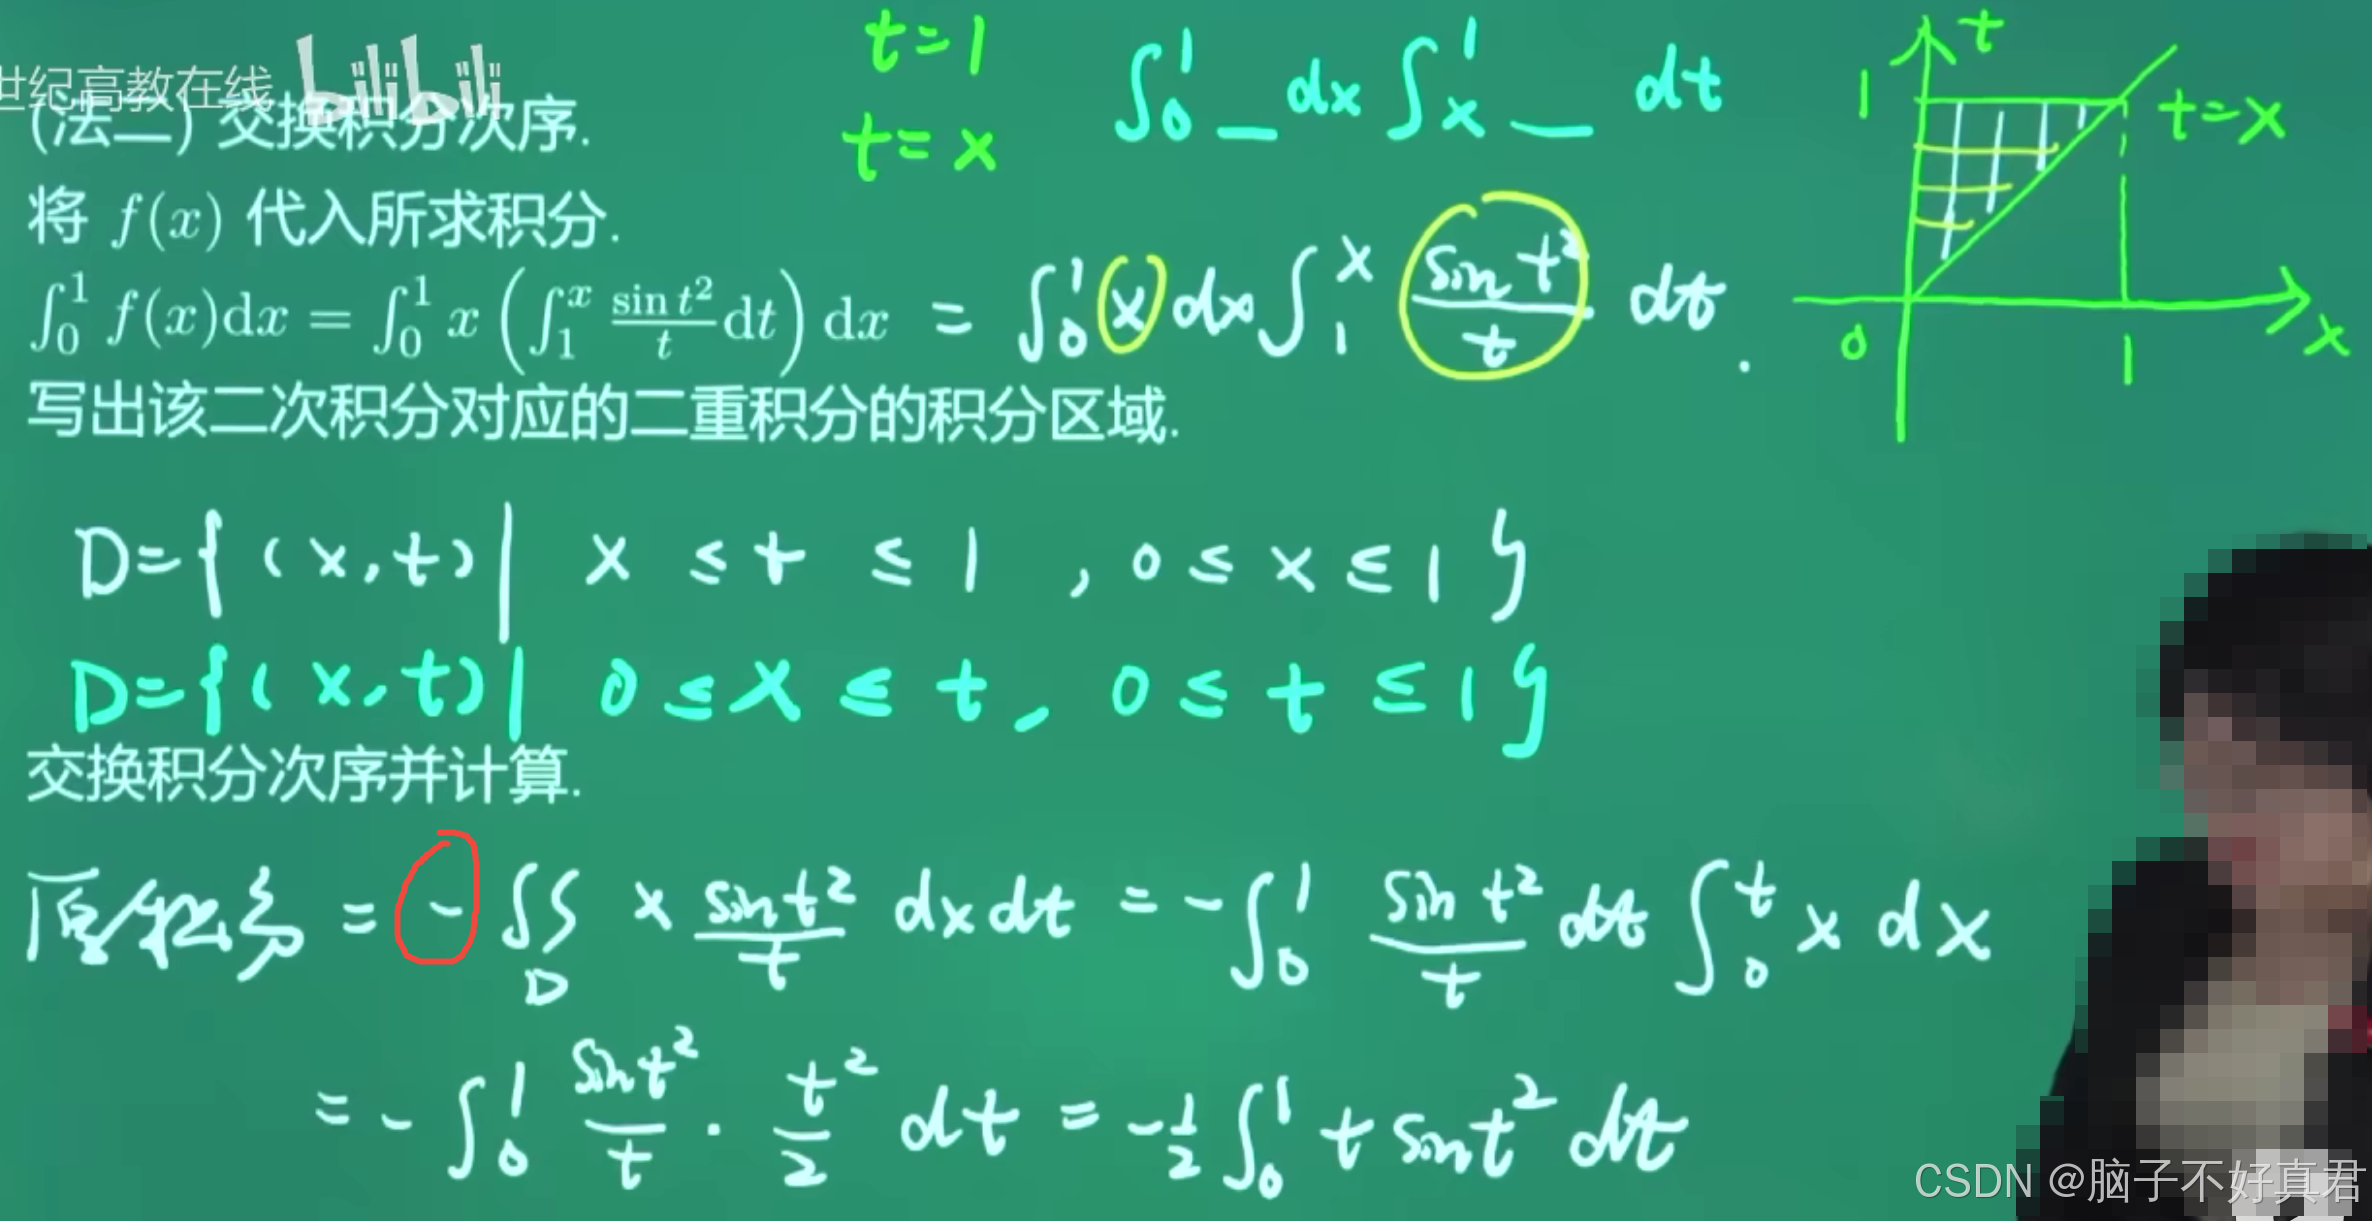 世纪高教在线 bilibili
(法二) 交换积分次序.
t=1
t=x
∫₀¹ _ dx ∫ₓ¹ _ dt
t
1
t=x
0
1
x
将 f(x) 代入所求积分.
∫₀¹ f(x)dx = ∫₀¹ x (∫₁ˣ (sin t²)/t dt) dx = ∫₀¹ x dx ∫₁ˣ (sin t²)/t dt.
写出该二次积分对应的二重积分的积分区域.
D={(x,t)| x ≤ t ≤ 1 , 0 ≤ x ≤ 1}
D={(x,t)| 0 ≤ x ≤ t, 0 ≤ t ≤ 1}
交换积分次序并计算.
原积分 = - ∬_D x (sin t²)/t dxdt = - ∫₀¹ (sin t²)/t dt ∫₀ᵗ x dx
= - ∫₀¹ (sin t²)/t · t²/2 dt = - 1/2 ∫₀¹ t sin t² dt
CSDN @脑子不好真君